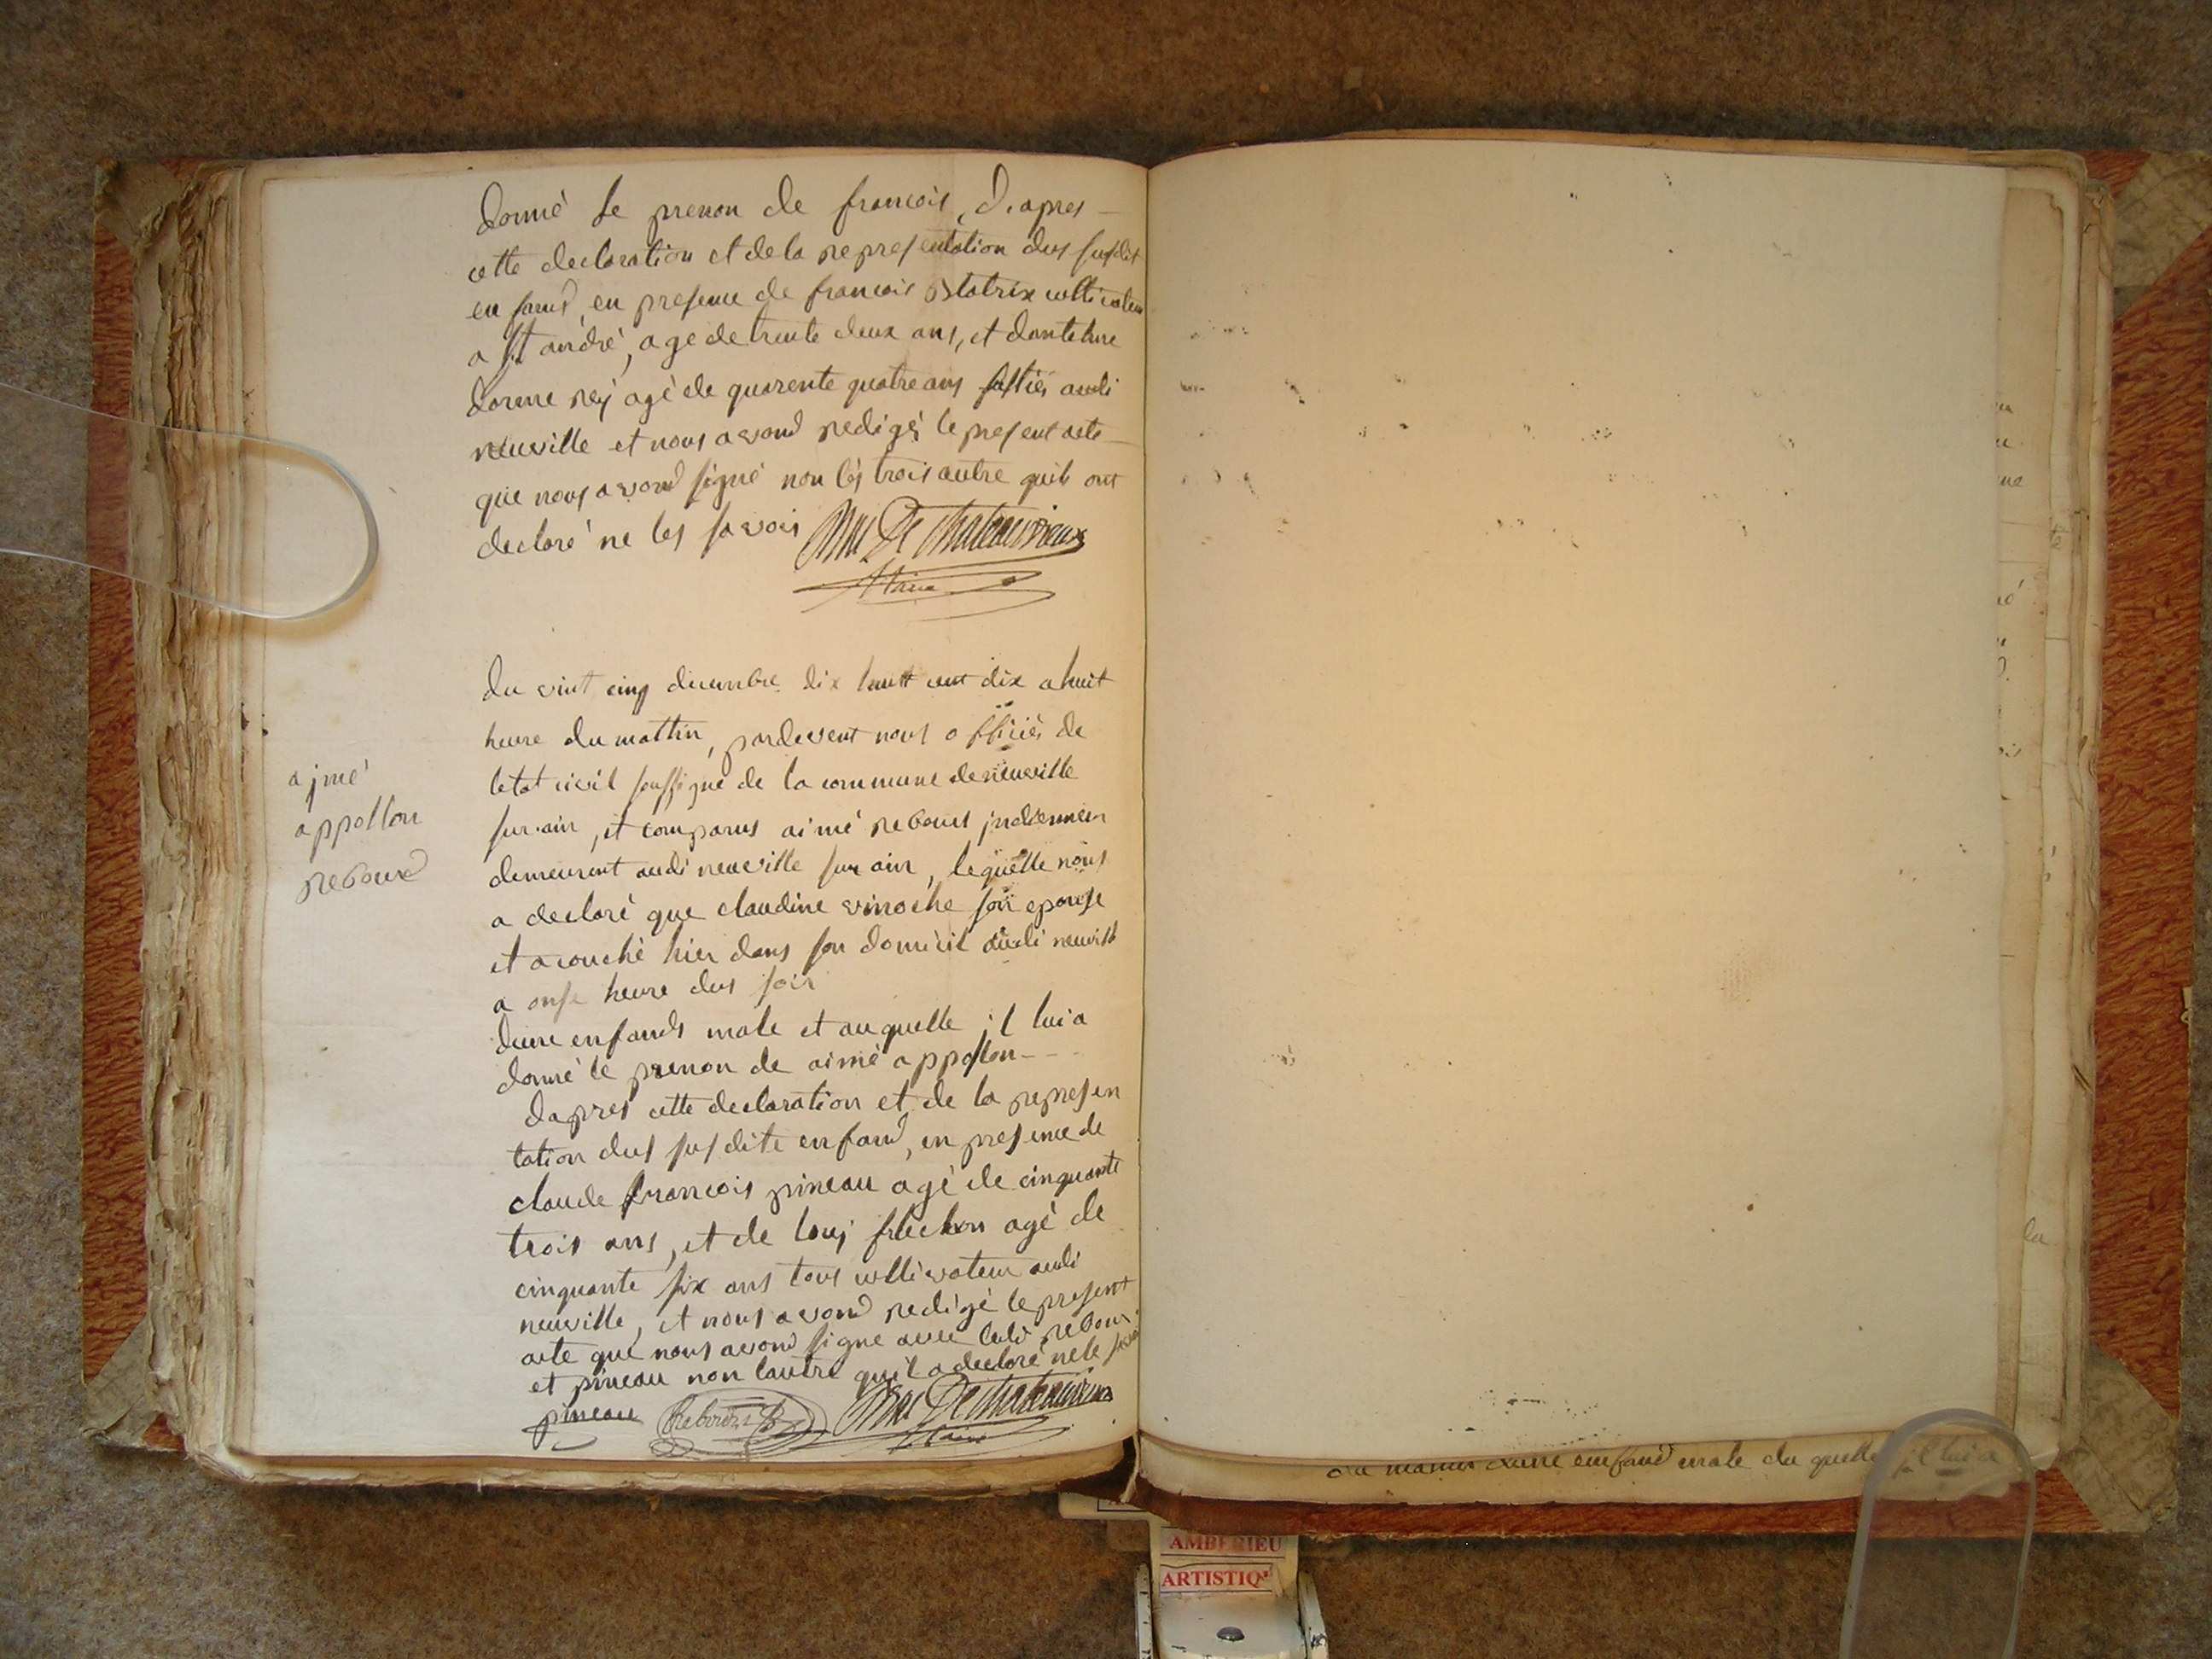 donné le prenon de francois, d'apres
cette declaration et de la representation dus susdit
enfand, en presence de francois statrix cultivateur
a st andré, age de trente deux ans, et
agé de quarente quatre ans audi
neuville et nous avond redigé le present acte
que nous avond signé non les trois autre quils ont
declaré ne les savoir
Maire
du vint cinq decembre dix huitt cent dix a huit
heure du mattin, pardevent nous officiés de
letat civil soussigné de la commune de neuville
sur.ain, et comparus aimé rebours
demeurent audi neuville sur ain, lequelle nous
a declaré que claudine vinoche son epouse
et acouché hier dans son domicil audi neuville
a onse heure dus soir
dune enfands male et auquelle il lui a
donné le prenon de aimé appollon
dapres cette declaration et de la represen
tation dus susdite enfand, en presence de
claude francois pineau agé de cinquante
trois ans, et de louj agé de
cinquante six ans tous cultivateur audi
neuville, et nous avond redigé le present
acte que nous avond signé avec ledi rebour
et pineau non lautre qu'il a declaré ne le savoir
pineau Rebours
Maire
ajmé
appollon
reboud
dune emfand male du quelle il lui a
AMBERIEU
ARTISTIQ